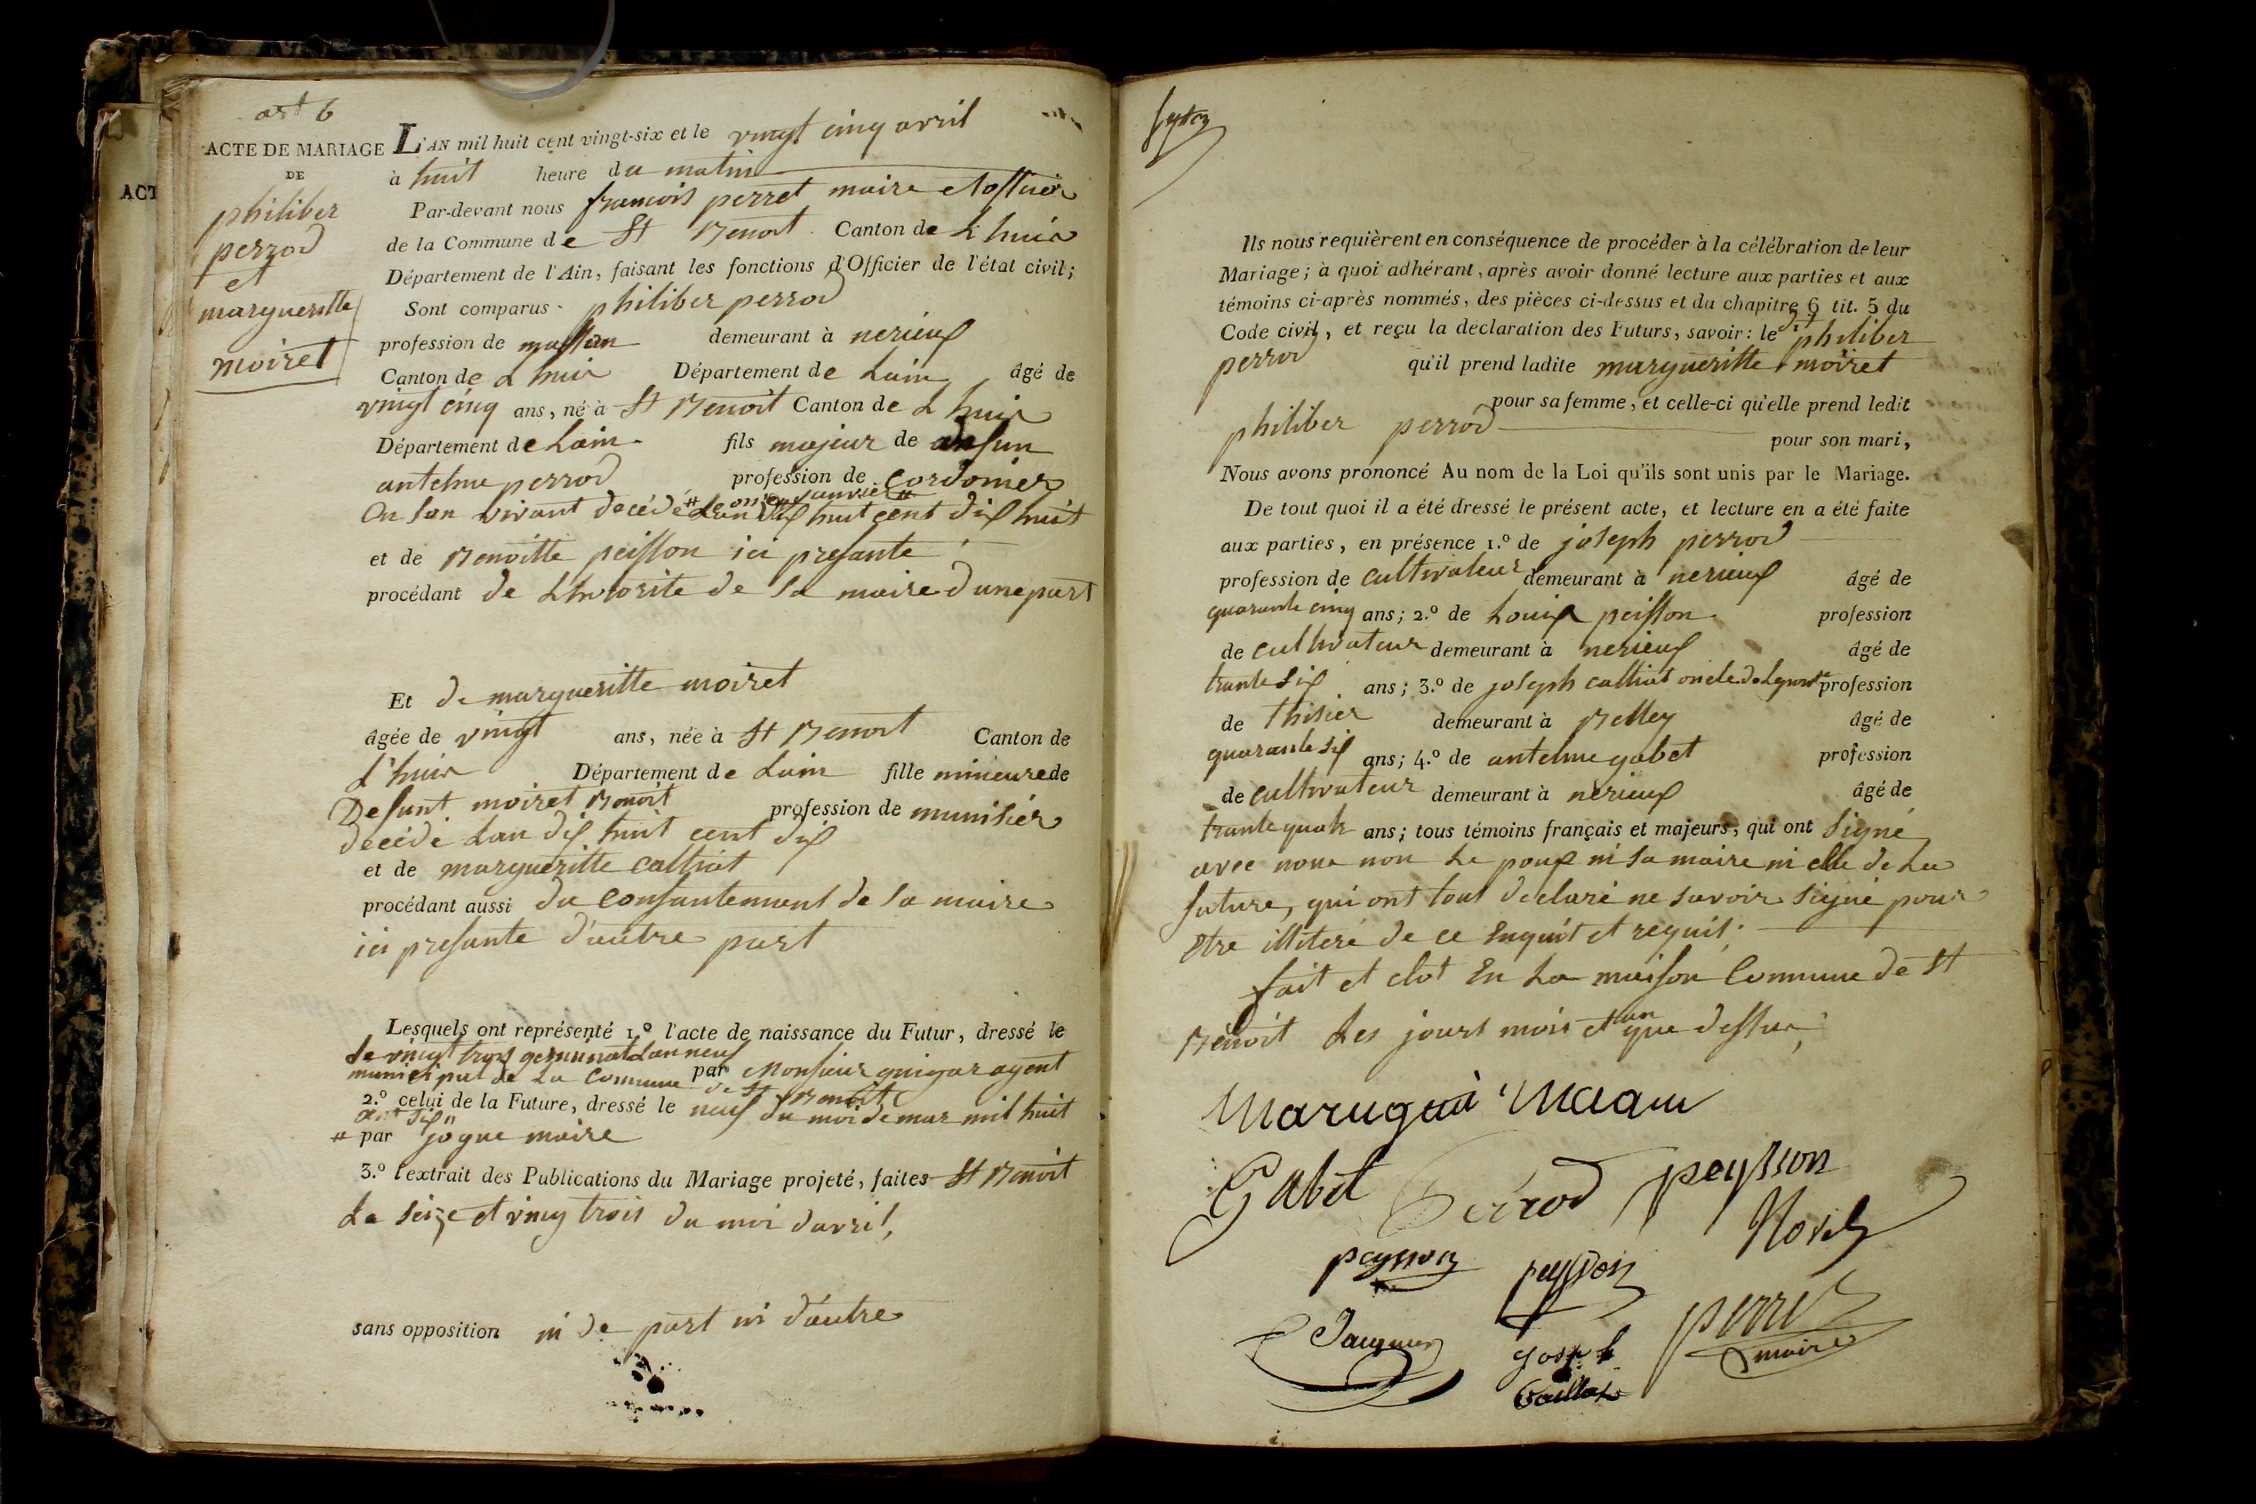 art 6
ACTE DE MARIAGE
DE
philiber
perrod
et
margueritte
moiret
L'AN mil huit cent vingt-six et le vingt cinq avril
à huit heure du matin
Par-devant nous francois perret maire et officier
de la Commune de St Benoit Canton de L'huis
Département de l'Ain, faisant les fonctions d'Officier de l'état civil;
Sont comparus philiber perrod
profession de masson demeurant à nerieux
Canton de L huis Département de Lain âgé de
vingt cinq ans, né à St Benoit Canton de L huis
Département de Lain fils majeur de defun
antelme perrod profession de cordonier
En son vivant decédé # le onze janvier # Lan dix huit cent dix huit
et de Benoitte peisson ici presante
procédant de Lhutorite de sa maire d'une part
Et de margueritte moiret
âgée de vingt ans, née à St Benoit Canton de
L'huis Département de Lain fille mineure de
Defunt moiret Benoit profession de munisier
decédé Lan dix huit cent dix
et de margueritte calliat
procédant aussi du consantement de sa maire
ici presante d'autre part
Lesquels ont représenté 1.º l'acte de naissance du Futur, dressé le
le vingt trois germinal Lan neuf par Monsieur guigar agent
municipal de La Commune de St Benoit
2.º celui de la Future, dressé le neuf du moi de mar mil huit
cent six #
# par jogue maire
3.º l'extrait des Publications du Mariage projeté, faites St Benoit
Le seize et vingt trois du moi davril,
sans opposition ni de part ni d'autre
Ils nous requièrent en conséquence de procéder à la célébration de leur
Mariage; à quoi adhérant, après avoir donné lecture aux parties et aux
témoins ci-après nommés, des pièces ci-dessus et du chapitre 6 tit. 5 du
Code civil, et reçu la déclaration des Futurs, savoir: le dit philiber
perrod qu'il prend ladite margueritte moiret
pour sa femme, et celle-ci qu'elle prend ledit
philiber perrod pour son mari,
Nous avons prononcé Au nom de la Loi qu'ils sont unis par le Mariage.
De tout quoi il a été dressé le présent acte, et lecture en a été faite
aux parties, en présence 1.º de joseph perrod
profession de cultivateur demeurant à nerieux âgé de
quarante cinq ans; 2.º de Louis peisson profession
de cultivateur demeurant à nerieux âgé de
trante six ans; 3.º de joseph calliat oncle de Lepouse profession
de thisier demeurant à Belley âgé de
quarante six ans; 4.º de antelme gabet profession
de cultivateur demeurant à nerieux âgé de
trante quatr ans; tous témoins français et majeurs, qui ont signé
avec nous non Le poux ni sa maire ni elle de La
future, qui ont tout declaré ne savoir signé pour
etre illiteré de ce enquit et requis;
fait et clot En La maison Commune de St
Benoit Les jours mois et an que dessus;
Gabet Perrod peysson
peysson peysson
joseph Caillat perret
maire